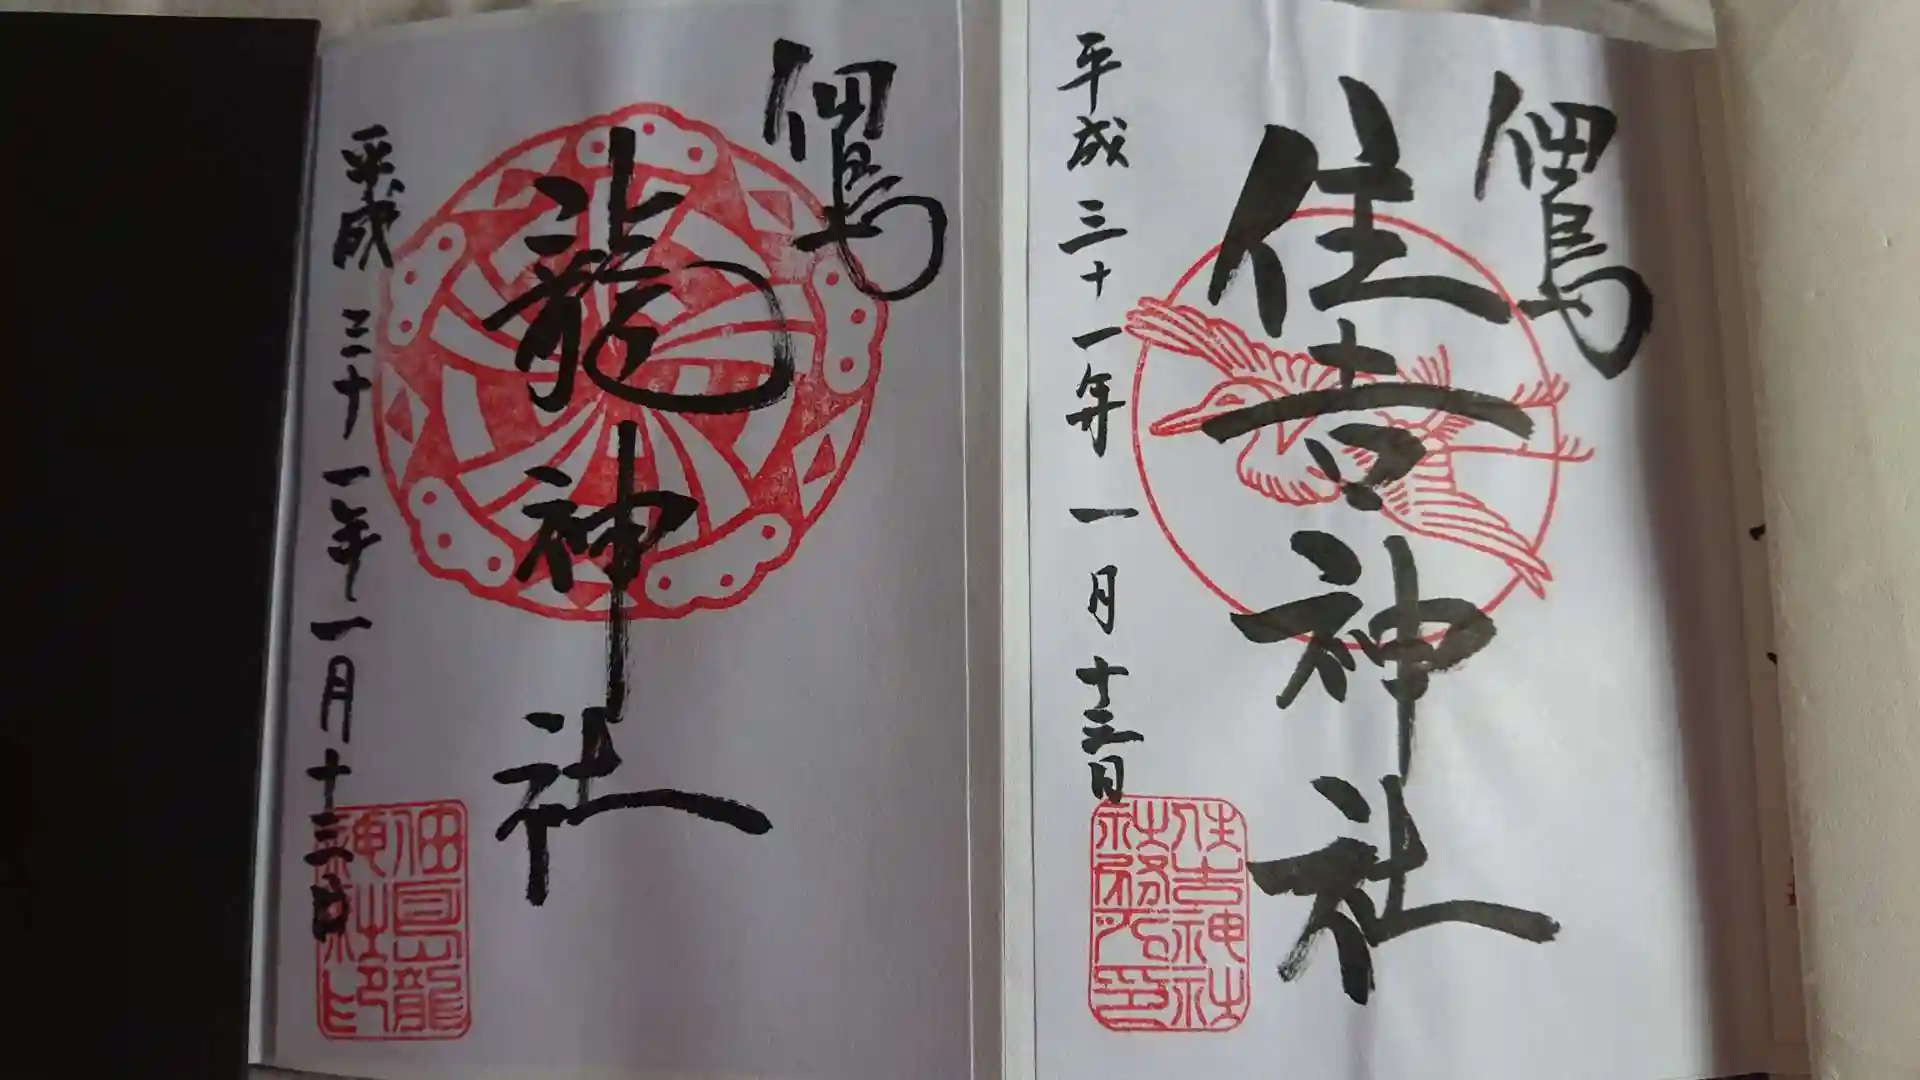 佃島
住吉神社
平成三十一年一月十三日
住吉神社
社務所印
佃島
龍神社
平成三十一年一月十三日
佃島龍
神社印